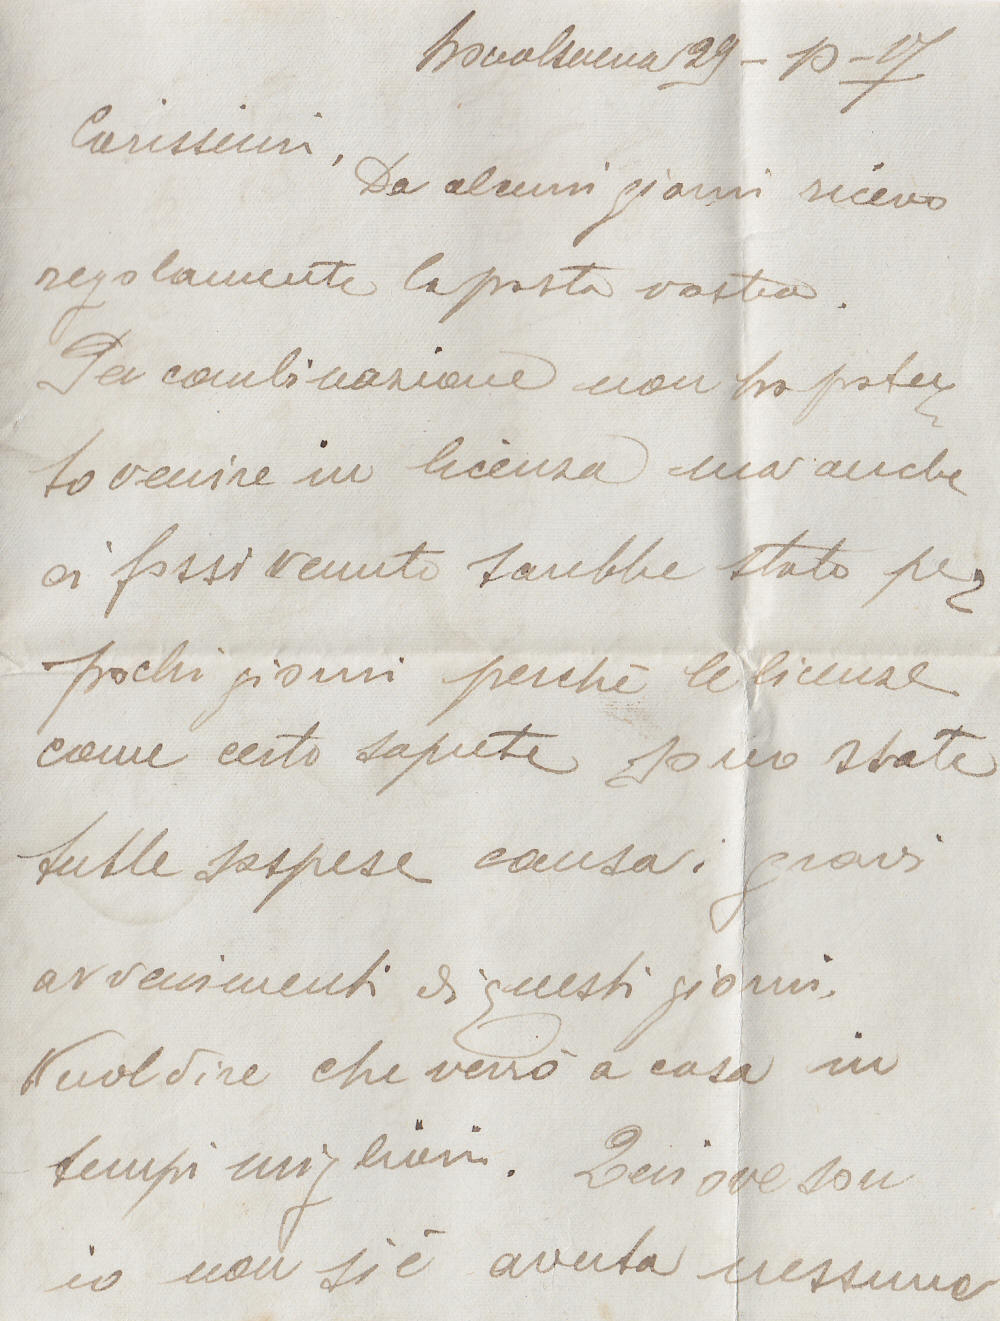 29 - 10 - 17
Carissimi,
Da alcuni giorni ricevo
regolamente la posta vostra.
Per combinazione non ho potu
to venire in licenza ma anche
si fossi venuto sarebbe stato per
pochi giorni perchè le licenze
come certo sapete sono state
tutte sospese causa i gravi
avvenimenti di questi giorni.
Vuol dire che verrò a casa in
tempi migliori. Qui ove son
io non si è avuta nessuna